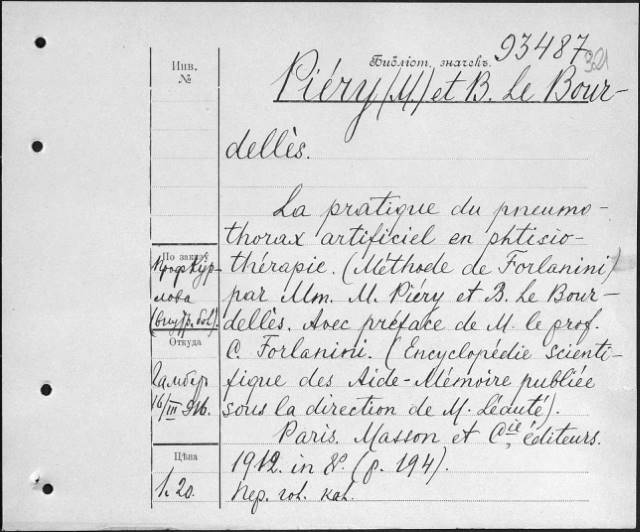 93487
321
Библіот. значекъ
Инв.
№
Piéry (M.) et B. Le Bour-
dellès.
La pratique du pneumo-
thorax artificiel en phtisio-
thérapie. (Méthode de Forlanini)
par Mm. M. Piéry et B. Le Bour-
dellès. Avec préface de M. le prof.
C. Forlanini. (Encyclopédie scienti-
fique des Aide-Mémoire publiée
sous la direction de M. Léauté).
Paris. Masson et Cie, éditeurs.
1912. in 8°. (p. 194).
По заказу
Проф. Кур-
лова
(внутр. бол.)
Откуда
16/III 916.
Цѣна
1.20.